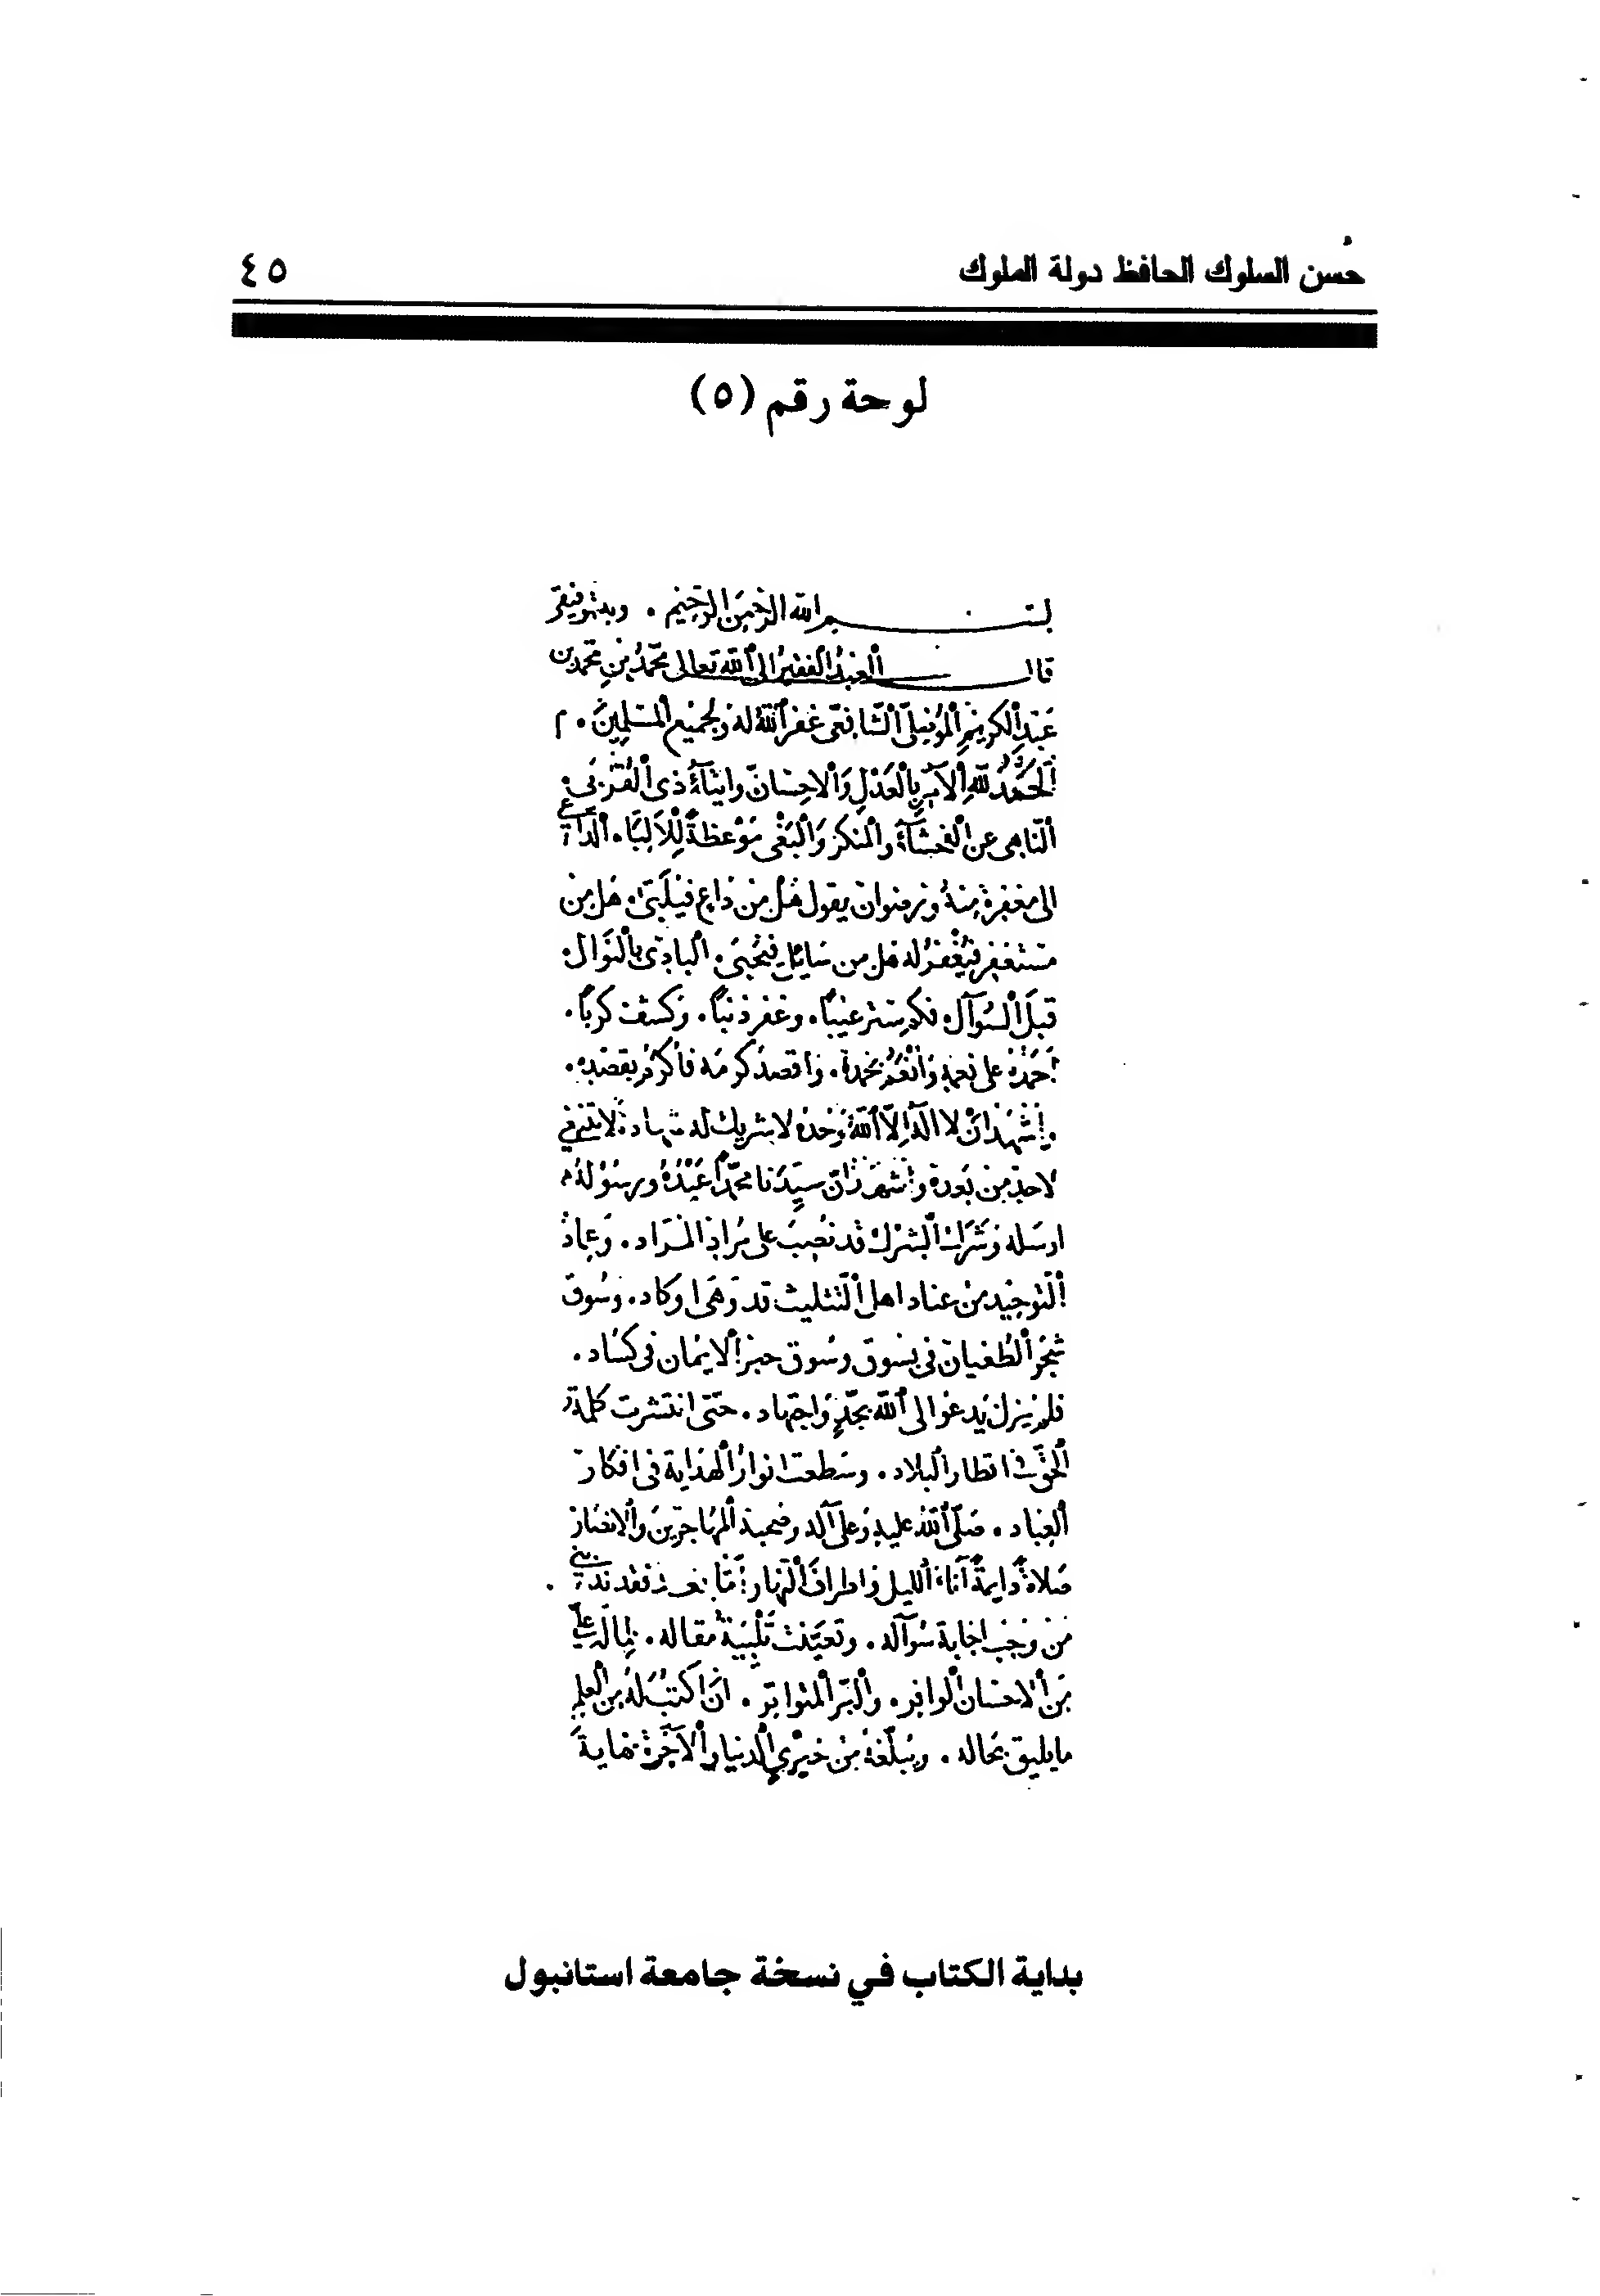 حُسن السلوك الحافظ دولة الملوك
٤٥
لوحة رقم (٥)
بسم الله الرحمن الرحيم . وبه توفيقى
قال العبد الفقير الى الله تعالى محمد بن محمد بن
عبد الكريم الموصلى الشافعى غفر الله له ولجميع المسلمين . م
الحمد لله الآمر بالعدل والاحسان وايتآء ذى القربى .
الناهى عن الفحشآء والمنكر والبغى موعظة للالبا . الداعى
الى مغفرة منه ورضوان يقول هل من داع فيلبى . هل من
مستغفر فيغفر له هل من سائل فيحبى . البادى بالنوال .
قبل السوآل . فكم ستر عيبا . وغفر ذنبا . وكشف كربا .
احمده على نعمه وانعم بحمده . واقصد كرمه فاكرم بقصده .
واشهد ان لا اله الا الله وحده لا شريك له شهادة لا تنبغى
لاحد من بعده واشهد ان سيدنا محمدا عبده ورسوله .
ارسله وشرك الشرك قد نصب على مراد المراد . وعماد
التوحيد من عناد اهل التثليث قد وهى او كاد . وسوق
شجر الطغيان فى بسوق وسوق حبر الايمان فى كساد .
فلم يزل يدعو الى الله بجد واجتهاد . حتى انتشرت كلمة
الحق فى اقطار البلاد . وسطعت انوار الهداية فى افكار
العباد . صلى الله عليه وعلى آله وصحبه المهاجرين والانصار
صلاة دايمة آناء الليل واطراف النهار اما بعد فقد ندبنى .
من وجب اجابة سوآله . وتعينت تلبية مقاله . لما له على
من الاحسان الوافر . والبر المتواتر . ان اكتب له من العلم
ما يليق بحاله . ويبلغه من خيرى الدنيا والآخرة نهاية
بداية الكتاب في نسخة جامعة استانبول